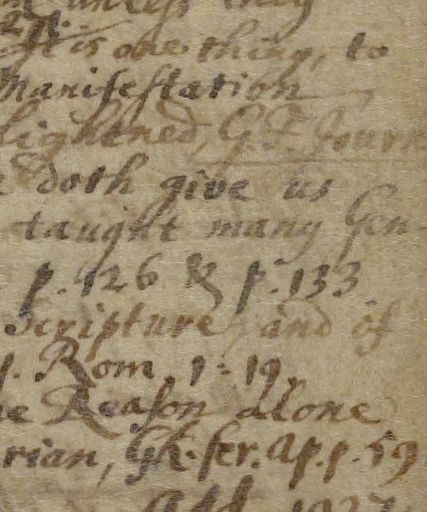 unless they
271.
It is one thing, to
Manifestation
lightned, G.F. Journ
doth give us
taught many Gen-
p. 126 & p. 133
Scripture, and of
Rom. 1: 19,
Reason alone
rian, GK. ser. ap. p. 59